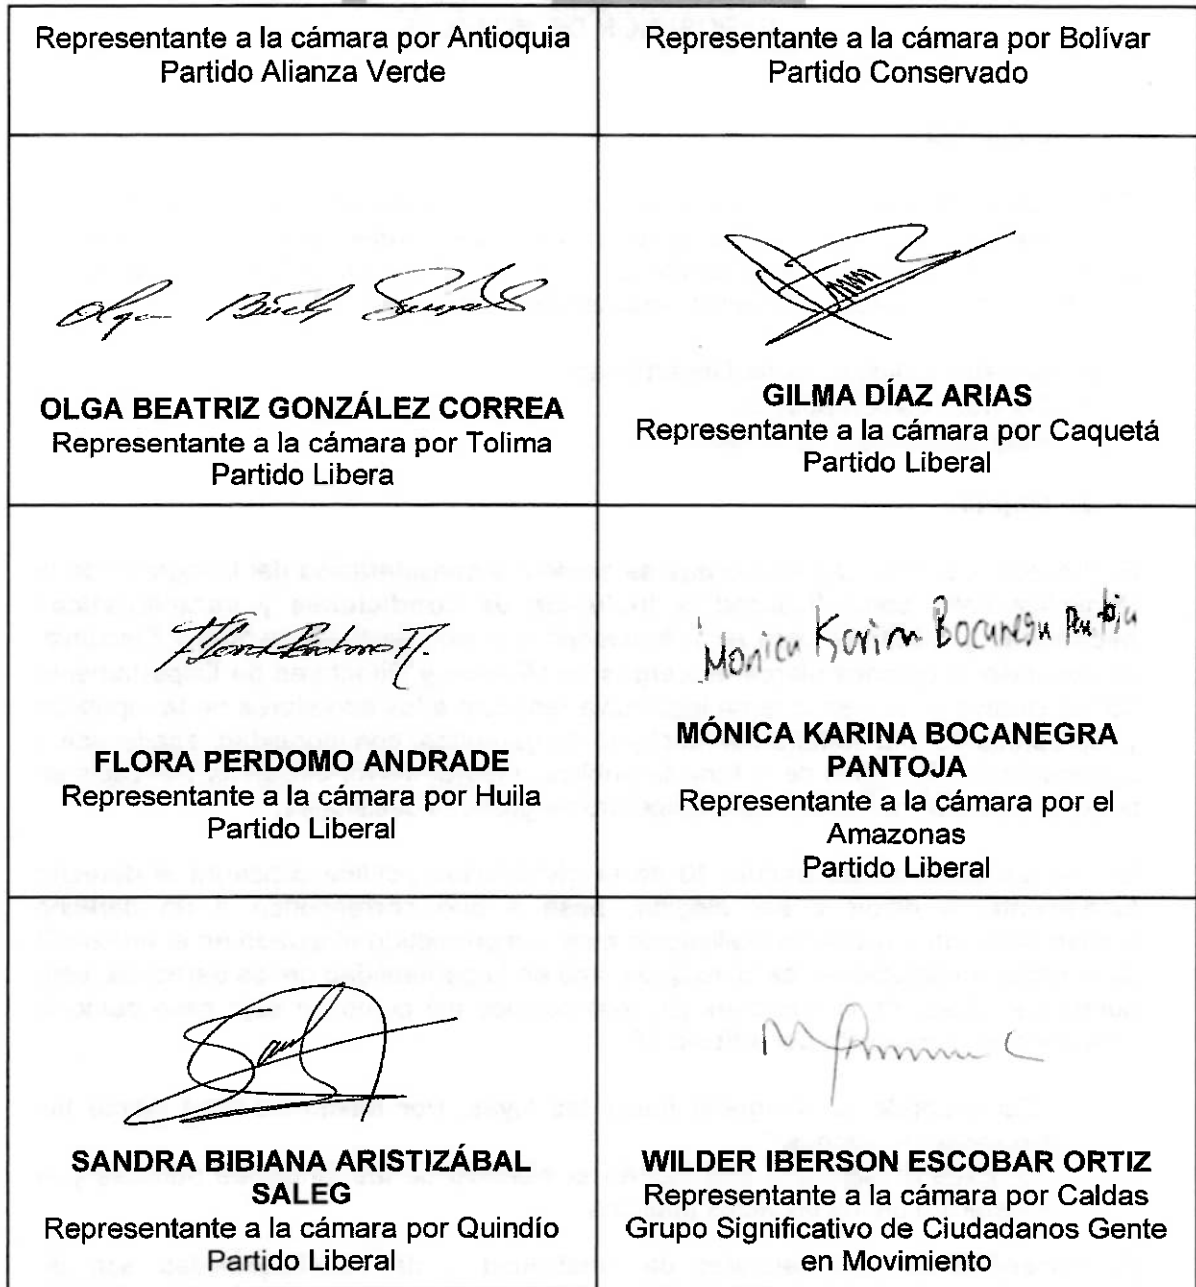 Representante a la cámara por Antioquia
Partido Alianza Verde
Representante a la cámara por Bolívar
Partido Conservado
OLGA BEATRIZ GONZÁLEZ CORREA
Representante a la cámara por Tolima
Partido Libera
GILMA DÍAZ ARIAS
Representante a la cámara por Caquetá
Partido Liberal
FLORA PERDOMO ANDRADE
Representante a la cámara por Huila
Partido Liberal
Monica Karina Bocanegra Pantoja
MÓNICA KARINA BOCANEGRA
PANTOJA
Representante a la cámara por el
Amazonas
Partido Liberal
SANDRA BIBIANA ARISTIZÁBAL
SALEG
Representante a la cámara por Quindío
Partido Liberal
WILDER IBERSON ESCOBAR ORTIZ
Representante a la cámara por Caldas
Grupo Significativo de Ciudadanos Gente
en Movimiento